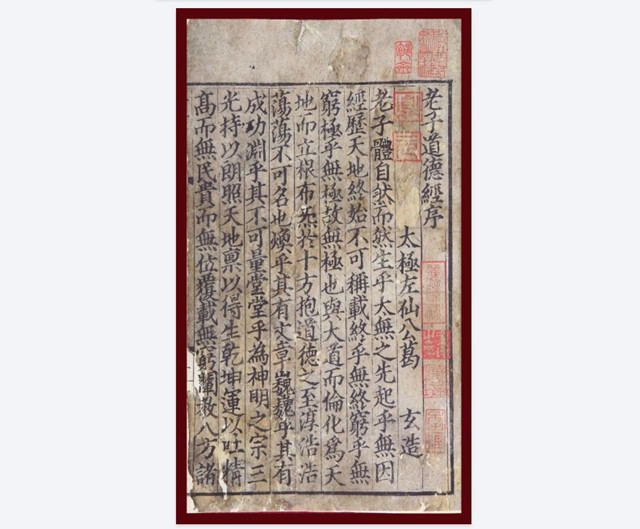 老子道德經序
太極左仙公葛 玄造
老子體自然而然生乎太無之先起乎無因
經歷天地終始不可稱載終乎無終窮乎無
窮極乎無極故無極也與大道而倫化爲天
地而立根布炁於十方抱道德之至淳浩浩
蕩蕩不可名也煥乎其有文章巍巍乎其有
成功淵乎其不可量堂堂乎為神明之宗三
光持以朗照天地稟以得生乾坤運以吐精
高而無民貴而無位覆載無窮闡教八方諸